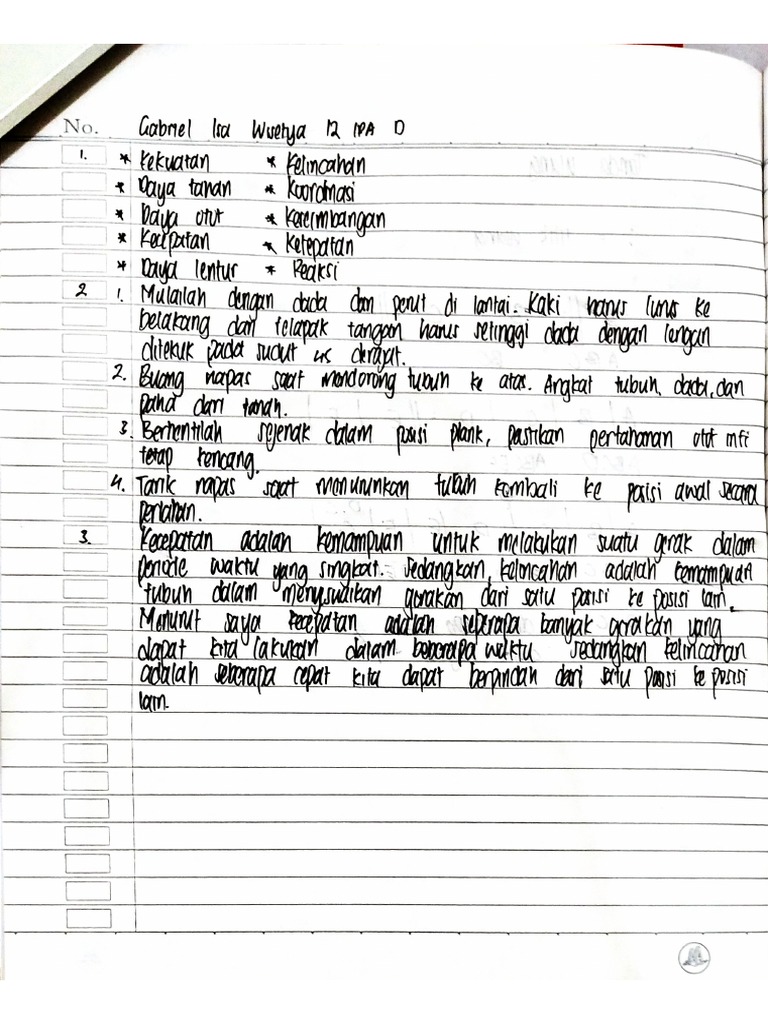 No. Gabriel Isa Wuetya 12 IPA D
1. * Kekuatan * Kelincahan
* Daya tahan * Koordinasi
* Daya otot * Keseimbangan
* Kecepatan * Ketepatan
* Daya lentur * Reaksi
2 1. Mulailah dengan dada dan perut di lantai. Kaki harus lurus ke
belakang dan telapak tangan harus setinggi dada dengan lengan
ditekuk pada sudut 45 derajat.
2. Buang napas saat mendorong tubuh ke atas. Angkat tubuh, dada, dan
paha dari tanah.
3. Berhentilah sejenak dalam posisi plank, pastikan pertahanan otot inti
tetap kencang.
4. Tarik napas saat menurunkan tubuh kembali ke posisi awal secara
perlahan.
3. Kecepatan adalah kemampuan untuk melakukan suatu gerak dalam
periode waktu yang singkat. Sedangkan, kelincahan adalah kemampuan
tubuh dalam menyesuaikan gerakan dari satu posisi ke posisi lain.
Menurut saya kecepatan adalah seberapa banyak gerakan yang
dapat kita lakukan dalam beberapa waktu sedangkan kelincahan
adalah seberapa cepat kita dapat berpindah dari satu posisi ke posisi
lain.